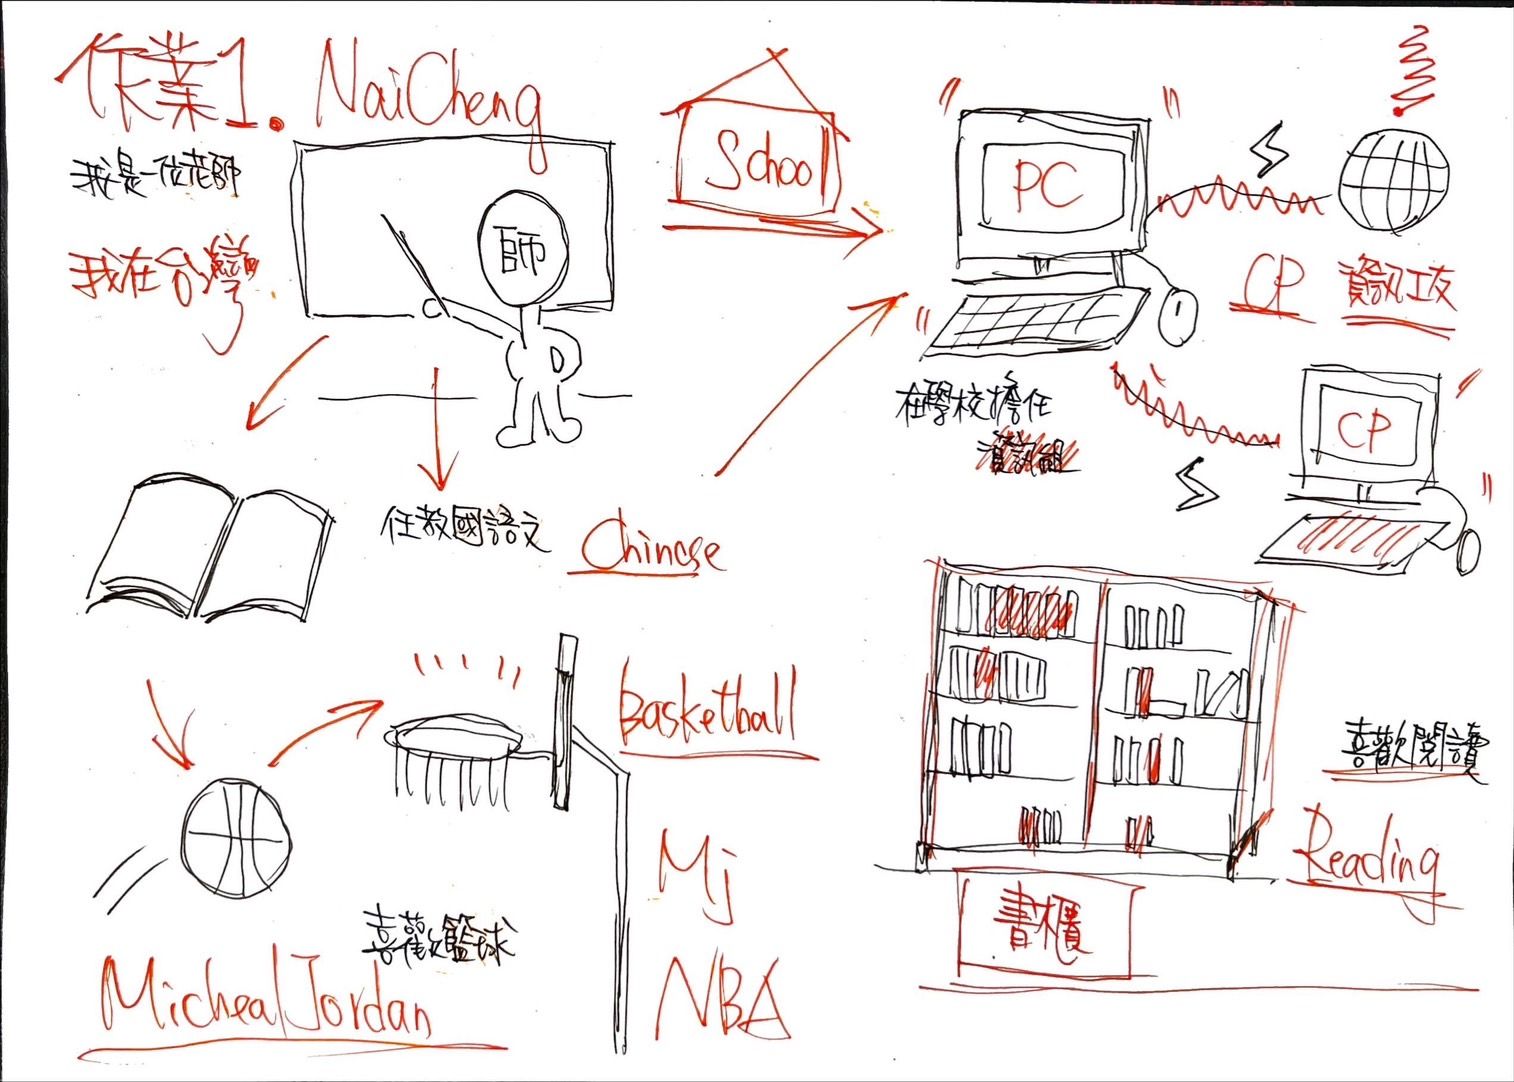 作業1. NaiCheng
我是一位老師
我在台灣
師
School
PC
CP 資訊工友
在學校擔任
資訊組
CP
任教國語文 Chinese
Basketball
Mj
NBA
喜歡籃球
Micheal Jordan
喜歡閱讀
Reading
書櫃